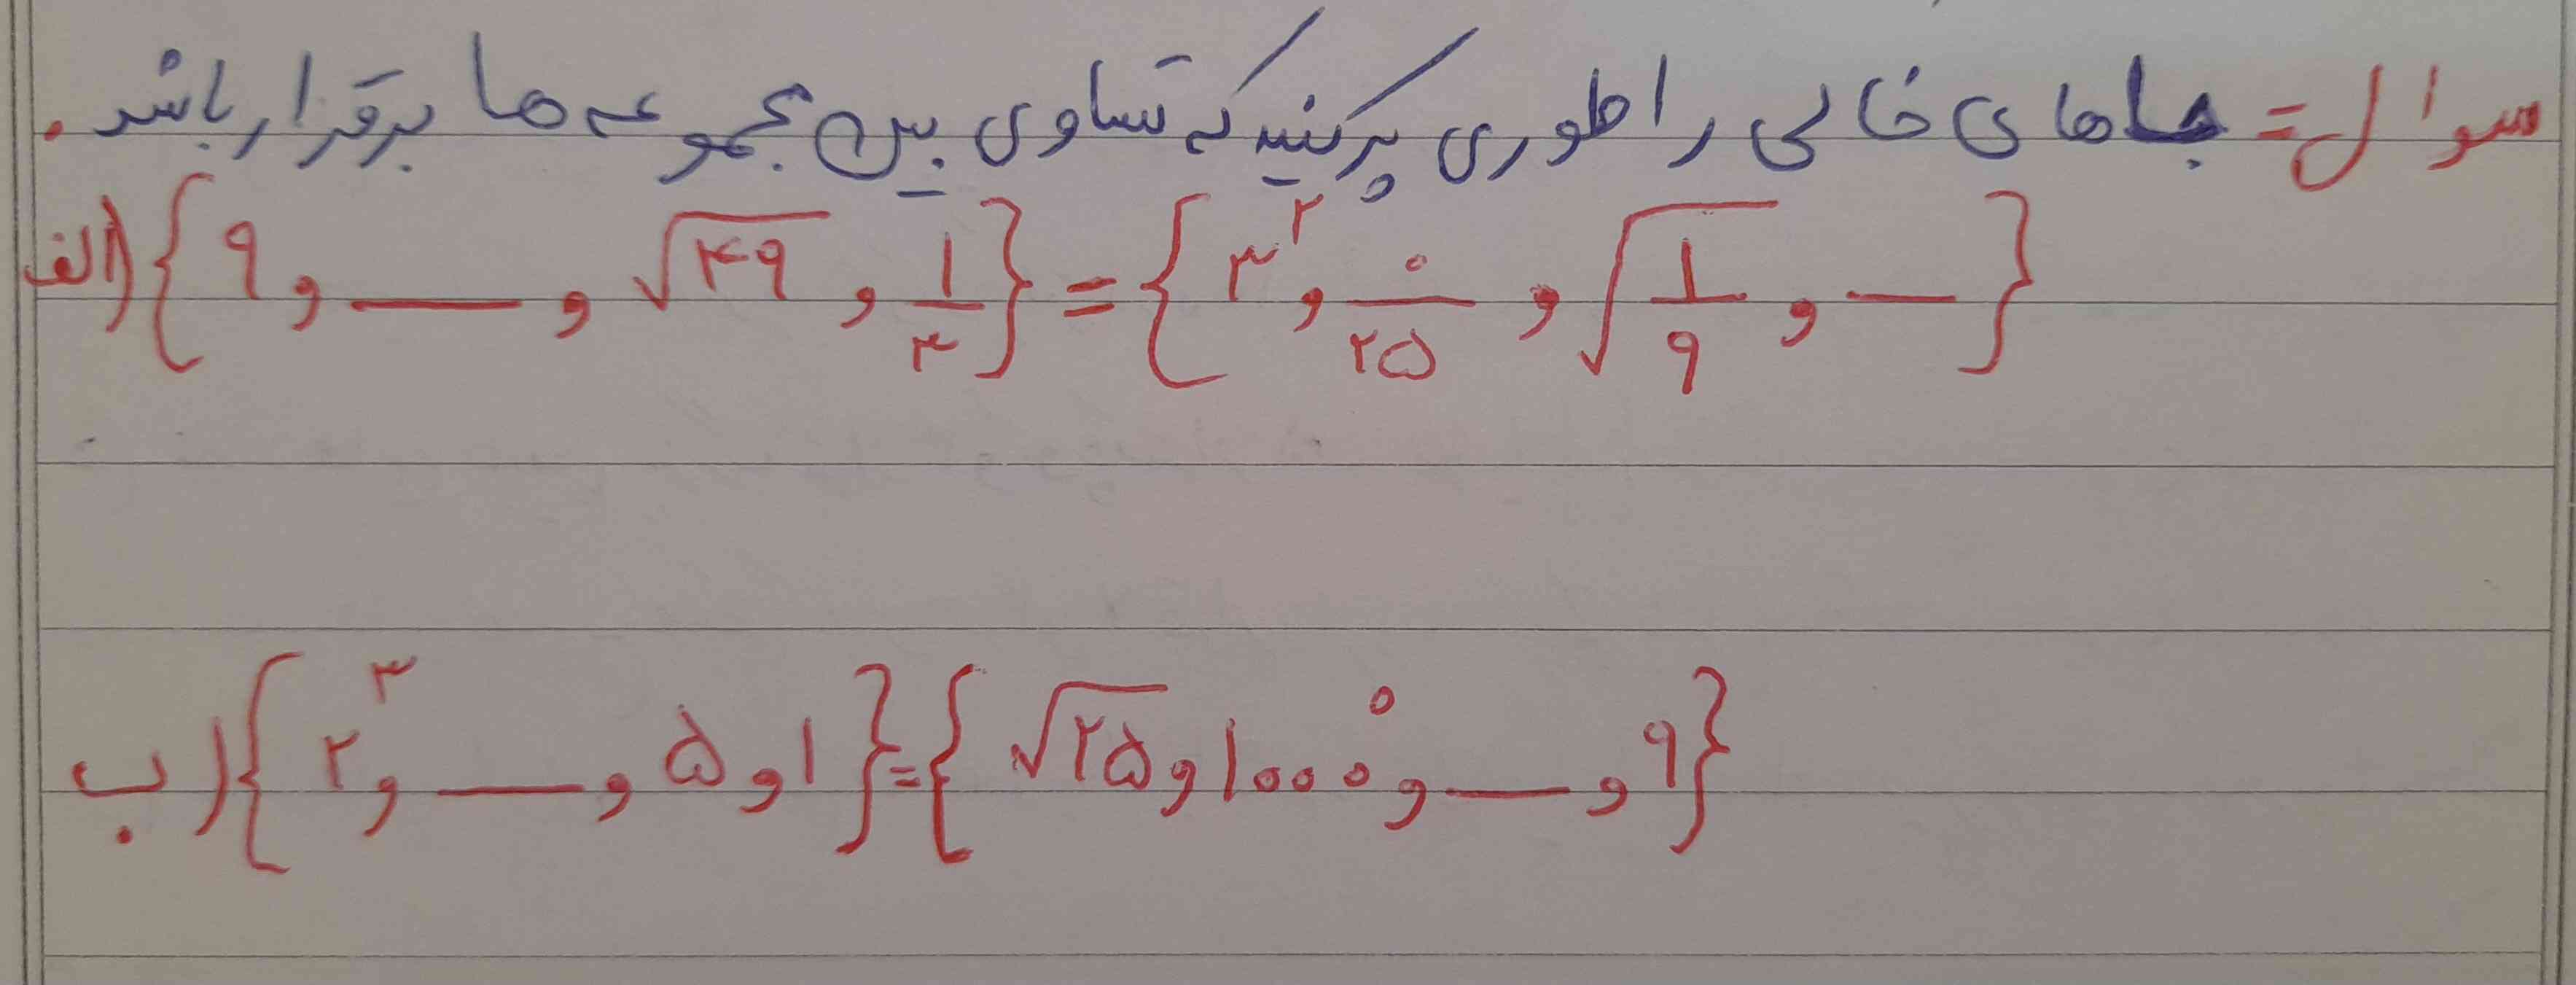 سوال = جاهای خالی را طوری پر کنید که تساوی بین مجموعه ها برقرار باشد.
الف) {۹ و ___ و √۴۹ و ۱/۳} = {۳^۲ و ۰/۲۵ و √(۱/۹) و ___}
ب) {۲^۳ و ___ و ۵ و ۱} = {√۲۵ و ۱۰۰۰^۰ و ___ و ۹}